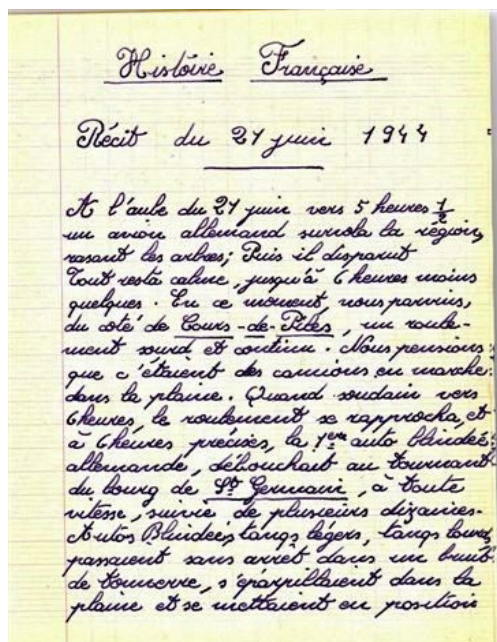 Histoire Française
Récit du 21 juin 1944
A l'aube du 21 juin vers 5 heures 1/2
un avion allemand survola la région,
rasant les arbres; Puis il disparut
Tout resta calme, jusqu'à 6 heures moins
quelques. En ce moment, nous parvins,
du coté de Cours-de-Piles, un roule-
ment sourd et continu. Nous pensions
que c'étaient des camions en marche
dans la plaine. Quand soudain vers
6 heures, le roulement se rapprocha, et
à 6 heures précises, la 1ère auto blindée
allemande, débouchait au tournant
du bourg de St Germain, à toute
vitesse, suivie de plusieurs dizaines-
Autos Blindées, tangs légers, tangs lourds,
passaient sans arret dans un bruit
de tonnerre, s'éparpillaient dans la
plaine et se mettaient en position